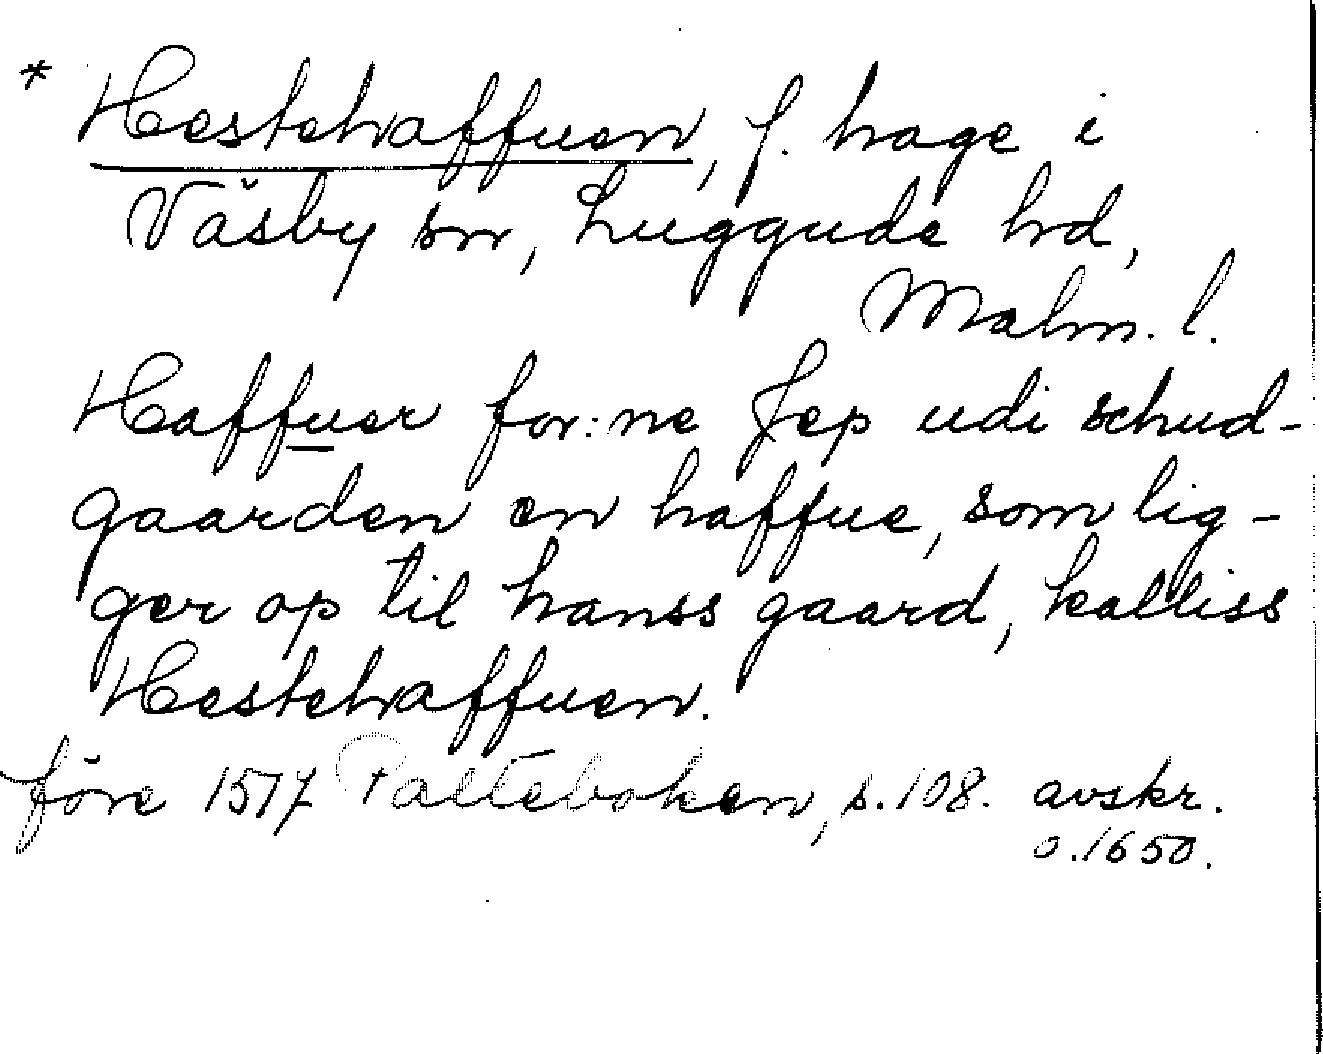 * Hestehaffuen, f. hage i
Väsby sn, Luggude hd,
Malm. l.
Haffuer for:ne Jep udi schud-
gaarden en haffue, som lig-
ger op til hanss gaard, kalliss
Hestehaffuen.
före 1517 Palteboken, s.108. avskr.
o.1650.